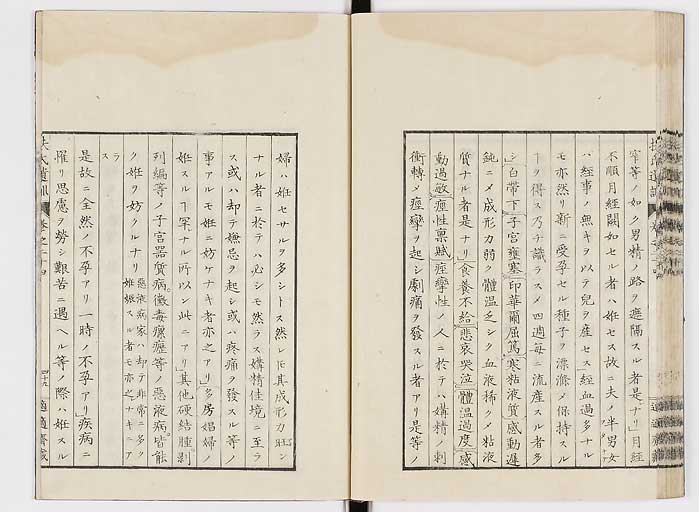 窄等ノ如ク男精ノ路ヲ遮隔スル者是ナリ」月經
不順月經閼如セル者ハ姙セス故ニ夫ノ半男女
ハ經事ノ無キヲ以テ兒ヲ産セス」經血過多ナル
モ亦然リ新ニ受孕セル種子ヲ漂滌〆保持スル
ヿヲ得ス乃チ識ラス〆四週毎ニ流産スル者多
シ」白帯下」子宮壅塞」印華爾屈篤」寒粘液質感動遲
鈍ニ〆成形力弱ク體温乏シク血液稀ク〆粘液
質ナル者是ナリ」食養不給」悲哀哭泣」體温過度」感
動過敏」痙性稟賦」痙攣性ノ人ニ於テハ媾精ノ刺
衝轉〆痙攣ヲ起シ劇痛ヲ發スル者アリ是等ノ
婦ハ姙セサルヲ多シトス然レ𪜈其成形力旺シ
ナル者ニ於テハ必シモ然ラス媾精佳境ニ至ラ
ス或ハ却テ嫌忌ヲ起シ或ハ疼痛ヲ發スル等ノ
事アルモ姙ニ妨ケナキ者亦之アリ」多房娼婦ノ
姙スルヿ罕ナル所以ン此ニアリ」其他硬結腫剥
列徧等ノ子宮器質病。黴毒瘰癧等ノ惡液病皆能
ク姙ヲ妨クルナリ 惡液病家ハ却テ非常ニ多ク
姙娠スル者モ亦之ナキニア
ラス
是故ニ全然ノ不孕アリ一時ノ不孕アリ」疾病ニ
罹リ思慮ヲ勞シ艱苦ニ遇ヘル等ノ際ハ姙スル
扶氏遺訓 卷之二十四 四十九 適適齋藏